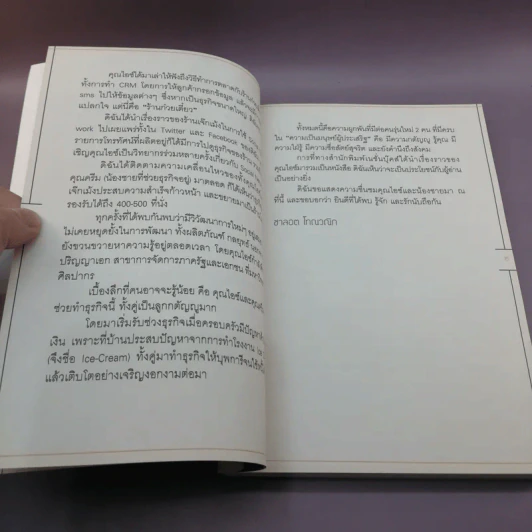 คุณไอซ์ได้มาเล่าให้ฟังถึงวิธีทำการตลาดกับร้านก๋วยเตี๋ยว
ทั้งการทำ CRM โดยการให้ลูกค้ากรอกข้อมูล แล้ว
sms ไปให้ข้อมูลต่างๆ ซึ่งหากเป็นธุรกิจขนาดใหญ่
แปลกใจ แต่นี่คือ "ร้านก๋วยเตี๋ยว"
ดิฉันได้นำเรื่องราวของร้านเจ๊กเม้งในการใช้
work ไปเผยแพร่ทั้งใน Twitter และ Facebook ของ
รายการโทรทัศน์ที่ผลิตอยู่ก็ได้มีการไปดูธุรกิจของร้าน
เชิญคุณไอซ์เป็นวิทยากรร่วมหลายครั้งเกี่ยวกับ
ดิฉันได้ติดตามความเคลื่อนไหวของทั้งคุณไอซ์
คุณครีม (น้องชายที่ช่วยธุรกิจอยู่) มาตลอด ก็ได้เห็น
เจ๊กเม้งประสบความสำเร็จก้าวหน้า และขยายมาเป็น
รองรับได้ถึง 400-500 ที่นั่ง
ทุกครั้งที่ได้พบกันพบว่ามีวิวัฒนาการใหม่ๆ
ไม่เคยหยุดยั้งในการพัฒนา ทั้งผลิตภัณฑ์ กลยุทธ์
ยังขวนขวายหาความรู้อยู่ตลอดเวลา โดยคุณไอซ์กำลัง
ปริญญาเอก สาขาการจัดการภาครัฐและเอกชน
ศิลปากร
เบื้องลึกที่คนอาจจะรู้น้อย คือ คุณไอซ์และคุณครีม
ช่วยทำธุรกิจนี้ ทั้งคู่เป็นลูกกตัญญูมาก
โดยมาเริ่มรับช่วงธุรกิจเมื่อครอบครัวมีปัญหา
เงิน เพราะที่บ้านประสบปัญหาจากการทำโรงงาน
(จึงชื่อ Ice-Cream) ทั้งคู่มาทำธุรกิจให้บุพการีจน
แล้วเติบโตอย่างเจริญงอกงามต่อมา
ทั้งหมดนี้คือความผูกพันที่มีต่อคนรุ่นใหม่ 2 คน ที่มีครบ
ใน "ความเป็นมนุษย์ผู้ประเสริฐ" คือ มีความกตัญญู รู้คุณ มี
ความใฝ่รู้ มีความซื่อสัตย์สุจริต และยังคำนึงถึงสังคม
การที่ทางสำนักพิมพ์เนชั่นบุ๊คส์ได้นำเรื่องราวของ
คุณไอซ์มารวมเป็นหนังสือ ดิฉันเห็นว่าจะเป็นประโยชน์กับผู้อ่าน
เป็นอย่างยิ่ง
ดิฉันขอแสดงความชื่นชมคุณไอซ์และน้องชายมา ณ
ที่นี้ และขอบอกว่า ยินดีที่ได้พบ รู้จัก และรักนับถือกัน
ชาลอต โทณวณิก